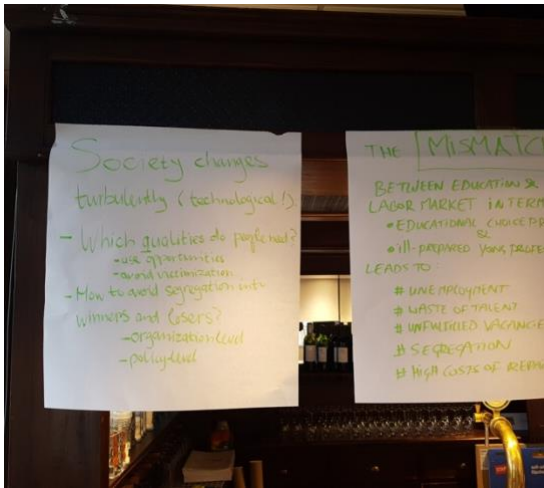 Society changes
turbulently (technological!)
- Which qualities do people need?
- use opportunities
- avoid victimization
- How to avoid segregation into
winners and losers?
- organization level
- policy level
THE MISMATCH
BETWEEN EDUCATION &
LABOR MARKET IN TERM
• EDUCATIONAL CHOICE
&
• ill-PREPARED YOUNG PROFES
LEADS TO:
# UNEMPLOYMENT
# WASTE OF TALENT
# UNFULFILLED VACANCE
# SEGREGATION
# HIGH COSTS OF